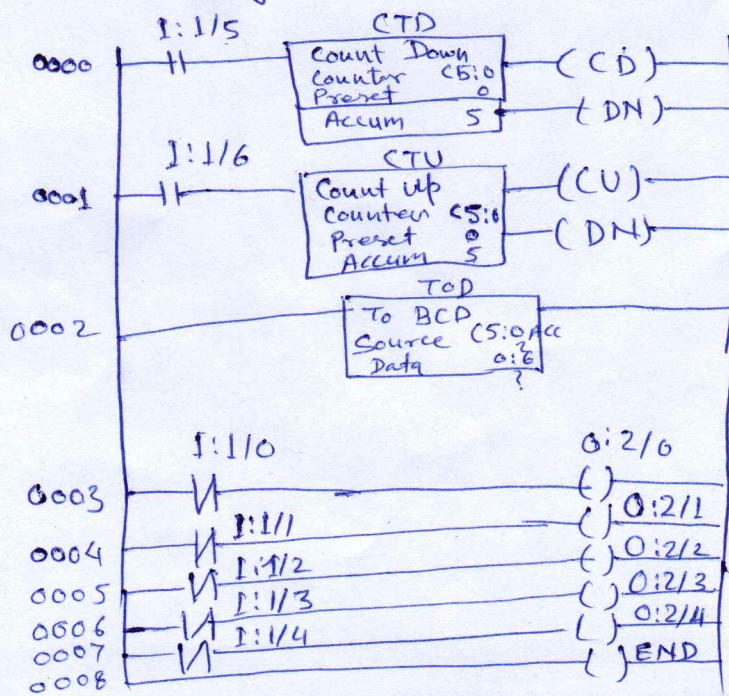 I:1/5
CTD
0000
Count Down
Counter C5:0
Preset 0
Accum 5
(CD)
(DN)
I:1/6
CTU
0001
Count Up
Counter C5:0
Preset 0
Accum 5
(CU)
(DN)
TOD
0002
To BCD
Source C5:0 Acc
?
Data O:6
?
I:1/0
O:2/0
0003
I:1/1
O:2/1
0004
I:1/2
O:2/2
0005
I:1/3
O:2/3
0006
I:1/4
O:2/4
0007
END
0008